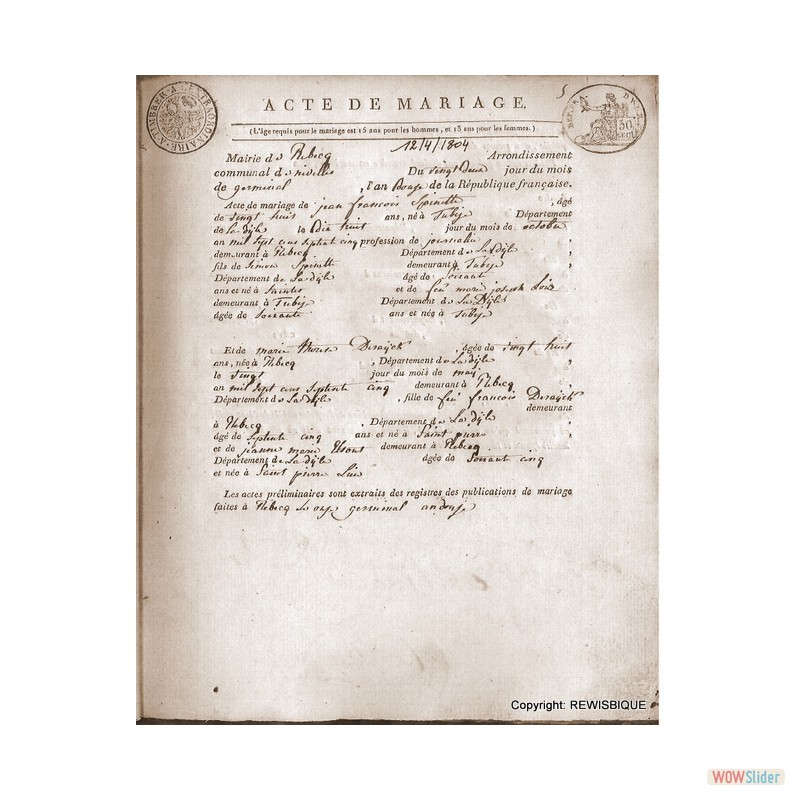 ACTE DE MARIAGE.
(L'âge requis pour le mariage est 15 ans pour les hommes, et 13 ans pour les femmes.)
12/4/1804
Mairie de Rebecq Arrondissement
communal de nivelles Du vingt deux jour du mois
de germinal , l'an Douze de la République française.
Acte de mariage de jean francois Spinette , âgé
de vingt huit ans, né à Tubize Département
de La dÿle le Dix huit jour du mois de octobre
an mil sept cens septente cinq profession de journalier ,
demeurant à Rebecq Département de La dÿle ,
fils de Simon Spinette demeurant à Tubize ,
Département de La dÿle âgé de soixante
ans et né à Saintes et de feu marie joseph
demeurant à Tubize Département de La Dÿle
âgée de soixante ans et née à Tubize
Et de marie therese Deraÿck , âgée de vingt huit
ans, née à Rebecq , Département de La dÿle ,
le vingt jour du mois de maÿ
an mil sept cens septente cinq demeurant à Rebecq ,
Département de La dÿle , fille de feu francois Deraÿck
demeurant
à Rebecq , Département de La dÿle
âgé de septente cinq ans et né à Saint pierre ,
et de jeanne marie demeurant à Rebecq
Département de La dÿle âgée de soixante cinq
et née à Saint pierre
Les actes préliminaires sont extraits des registres des publications de mariage
faites à Rebecq Le onze germinal an douze
Copyright: REWISBIQUE
WOWSlider